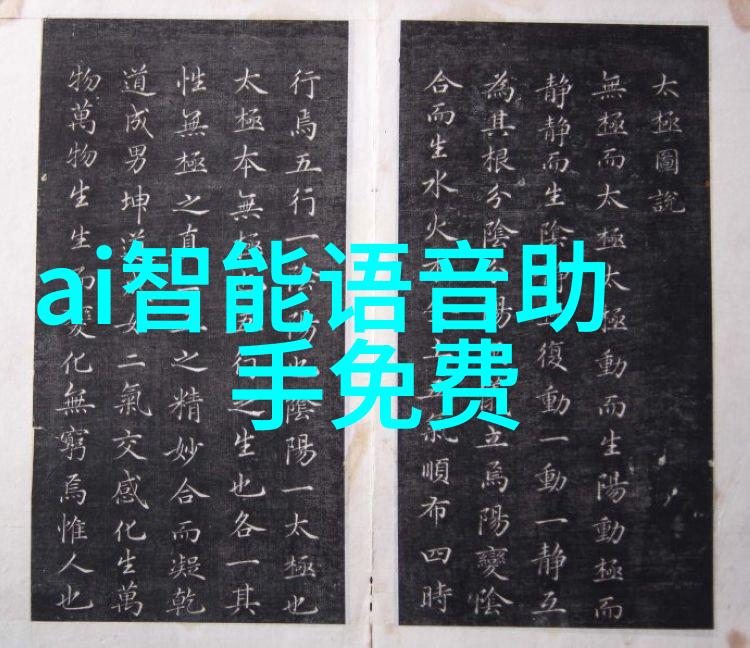 太極圖說
無極而太極太極動而生陽動極而
静静而生陰静復動一動一静互
為其根分陰陽立焉陽變陰
合而生水火氣順布四時
行焉五行一陰陽也陰陽一太極也
太極本無極行之生也各一其
性無極之真之精妙合而凝乾
道成男坤道女二氣交感化生萬
物萬物生生而變化無窮焉惟人也
ai智能语音助
手免费